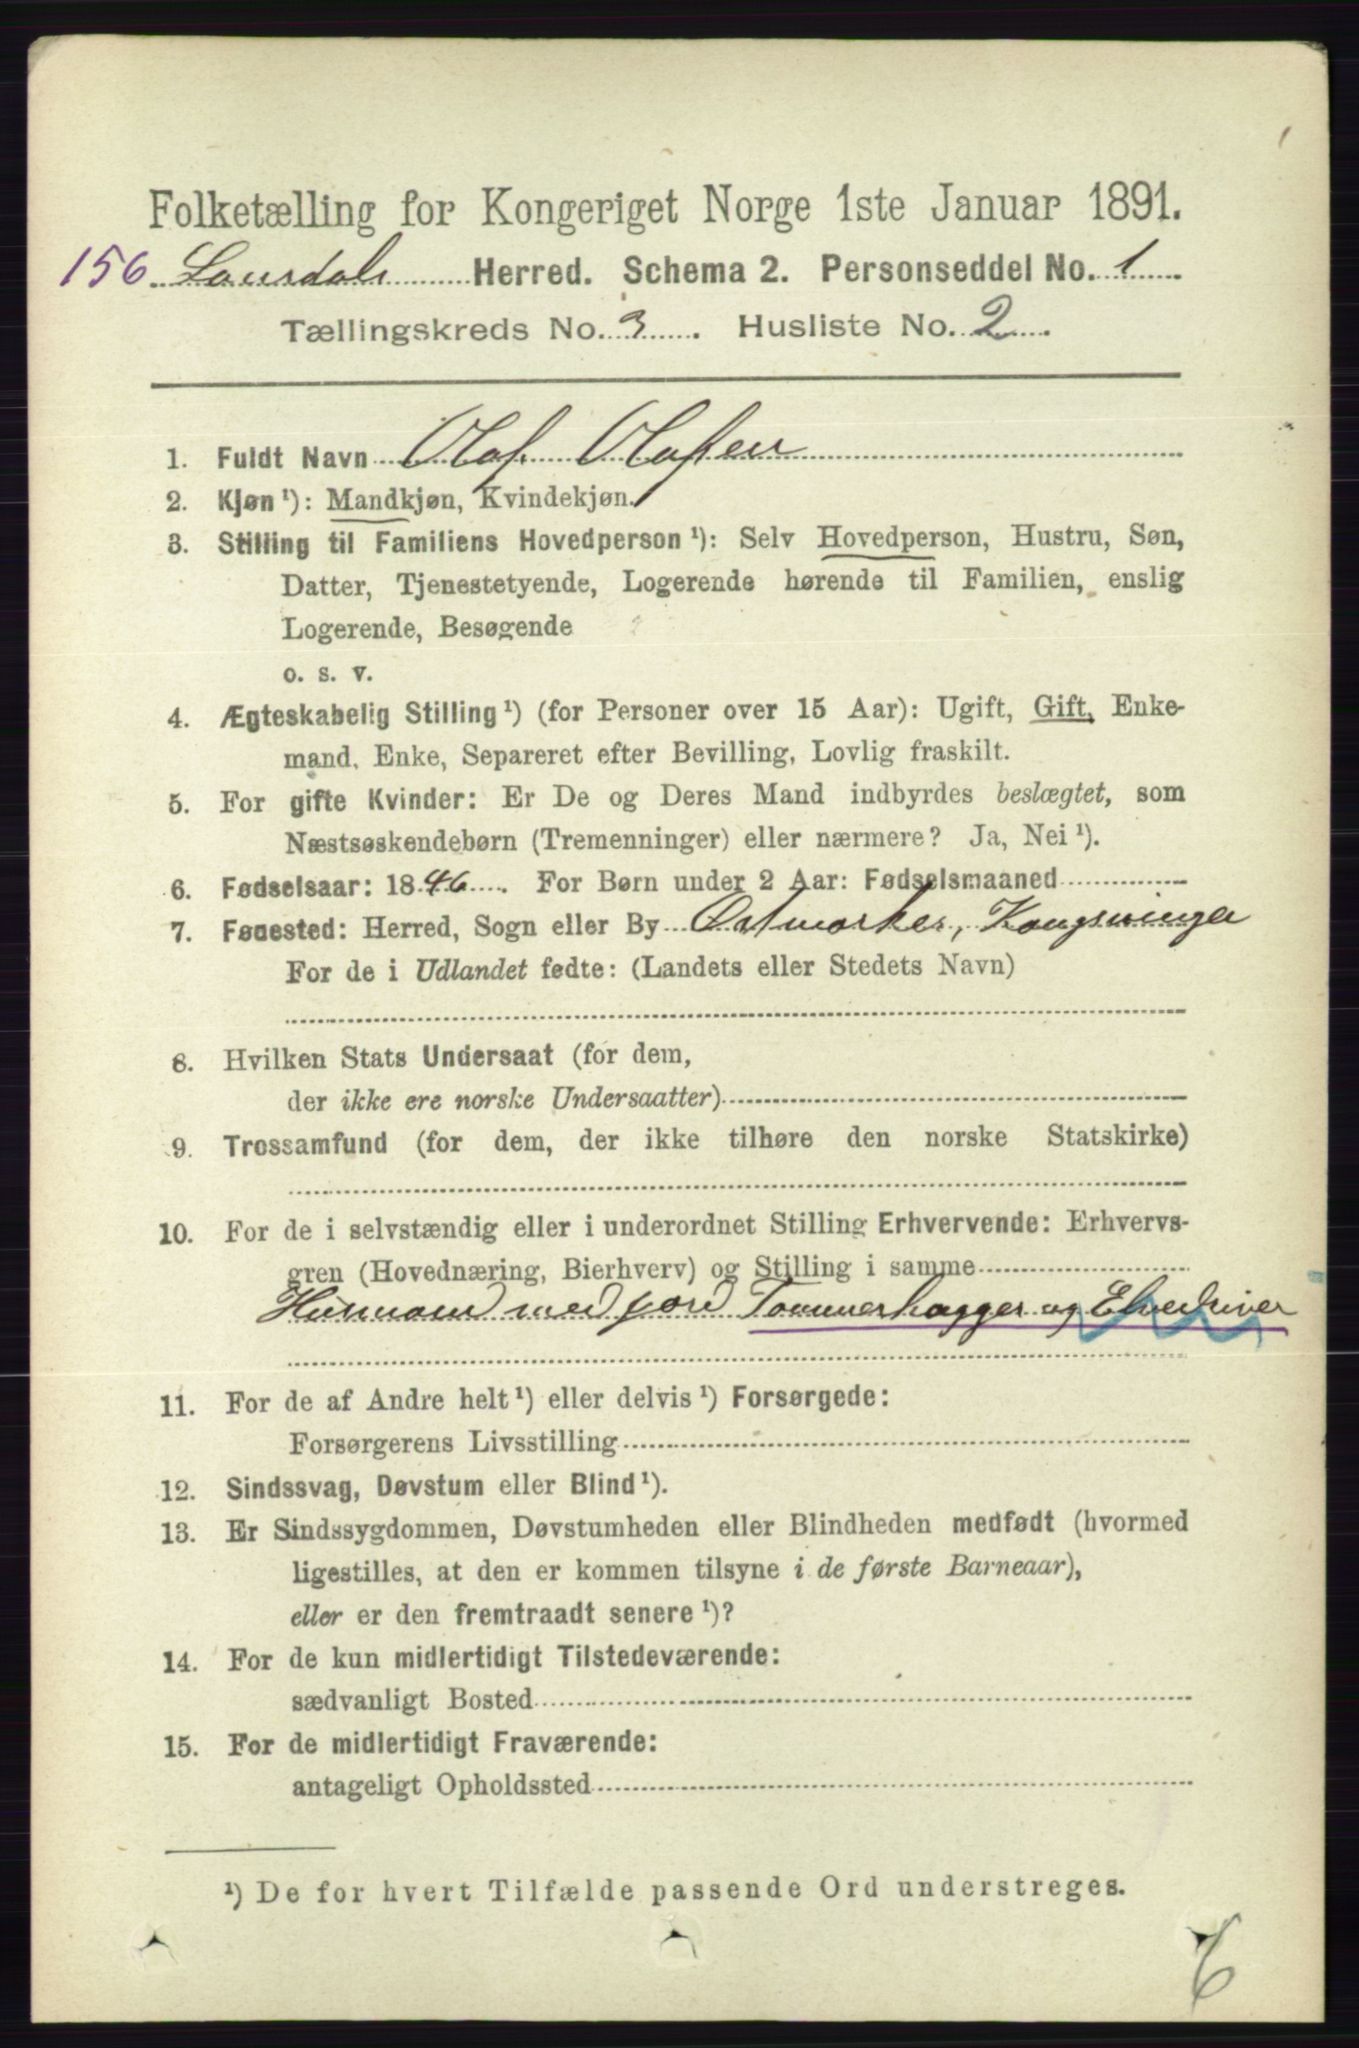 Folketælling for Kongeriget Norge 1ste Januar 1891.
156 Laurdals Herred. Schema 2. Personseddel No. 1
Tællingskreds No. 3. Husliste No. 2.
1. Fuldt Navn Olaf Olafsen
2. Kjøn ¹): Mandkjøn, Kvindekjøn.
3. Stilling til Familiens Hovedperson ¹): Selv Hovedperson, Hustru, Søn,
Datter, Tjenestetyende, Logerende hørende til Familien, enslig
Logerende, Besøgende
o. s. v.
4. Ægteskabelig Stilling ¹) (for Personer over 15 Aar): Ugift, Gift, Enke-
mand, Enke, Separeret efter Bevilling, Lovlig fraskilt.
5. For gifte Kvinder: Er De og Deres Mand indbyrdes beslægtet, som
Næstsøskendebørn (Tremenninger) eller nærmere? Ja, Nei ¹).
6. Fødselsaar: 1846. For Børn under 2 Aar: Fødselsmaaned
7. Fødested: Herred, Sogn eller By Østmarken, Kongsvinger
For de i Udlandet fødte: (Landets eller Stedets Navn)
8. Hvilken Stats Undersaat (for dem,
der ikke ere norske Undersaatter)
9. Trossamfund (for dem, der ikke tilhøre den norske Statskirke)
10. For de i selvstændig eller i underordnet Stilling Erhvervende: Erhvervs-
gren (Hovednæring, Bierhverv) og Stilling i samme
Husmand med jord Tømmerhugger og Elvedriver
11. For de af Andre helt ¹) eller delvis ¹) Forsørgede:
Forsørgerens Livsstilling
12. Sindssvag, Døvstum eller Blind ¹).
13. Er Sindssygdommen, Døvstumheden eller Blindheden medfødt (hvormed
ligestilles, at den er kommen tilsyne i de første Barneaar),
eller er den fremtraadt senere ¹)?
14. For de kun midlertidigt Tilstedeværende:
sædvanligt Bosted
15. For de midlertidigt Fraværende:
antageligt Opholdssted
¹) De for hvert Tilfælde passende Ord understreges.